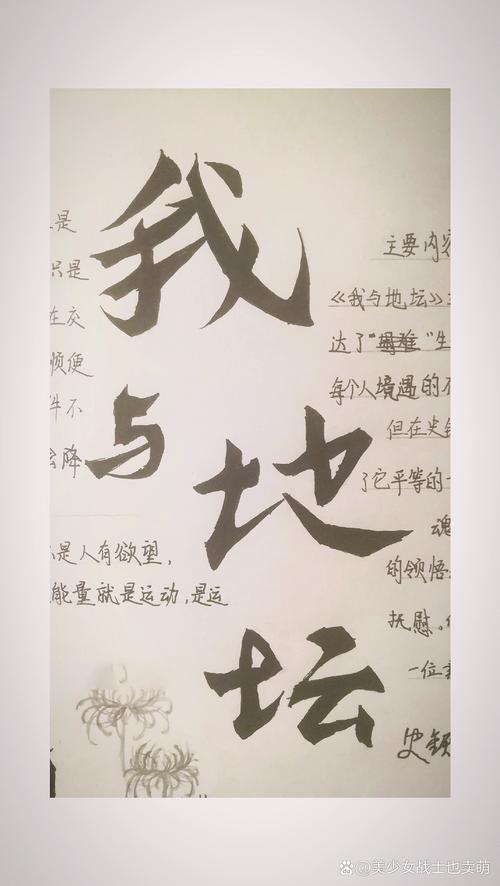 我与地坛
是
只是
在交
顺便
件不
降
是人有欲望，
能量就是运动，是运
主要内容
《我与地坛》
达了"困难"生
每个人境遇的不
但在史铁
了它平等的一
魂
的领悟
抚慰。
一位
史铁
@美少女战士也卖萌